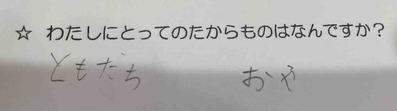 ☆ わたしにとってのたからものはなんですか？
ともだち　おや